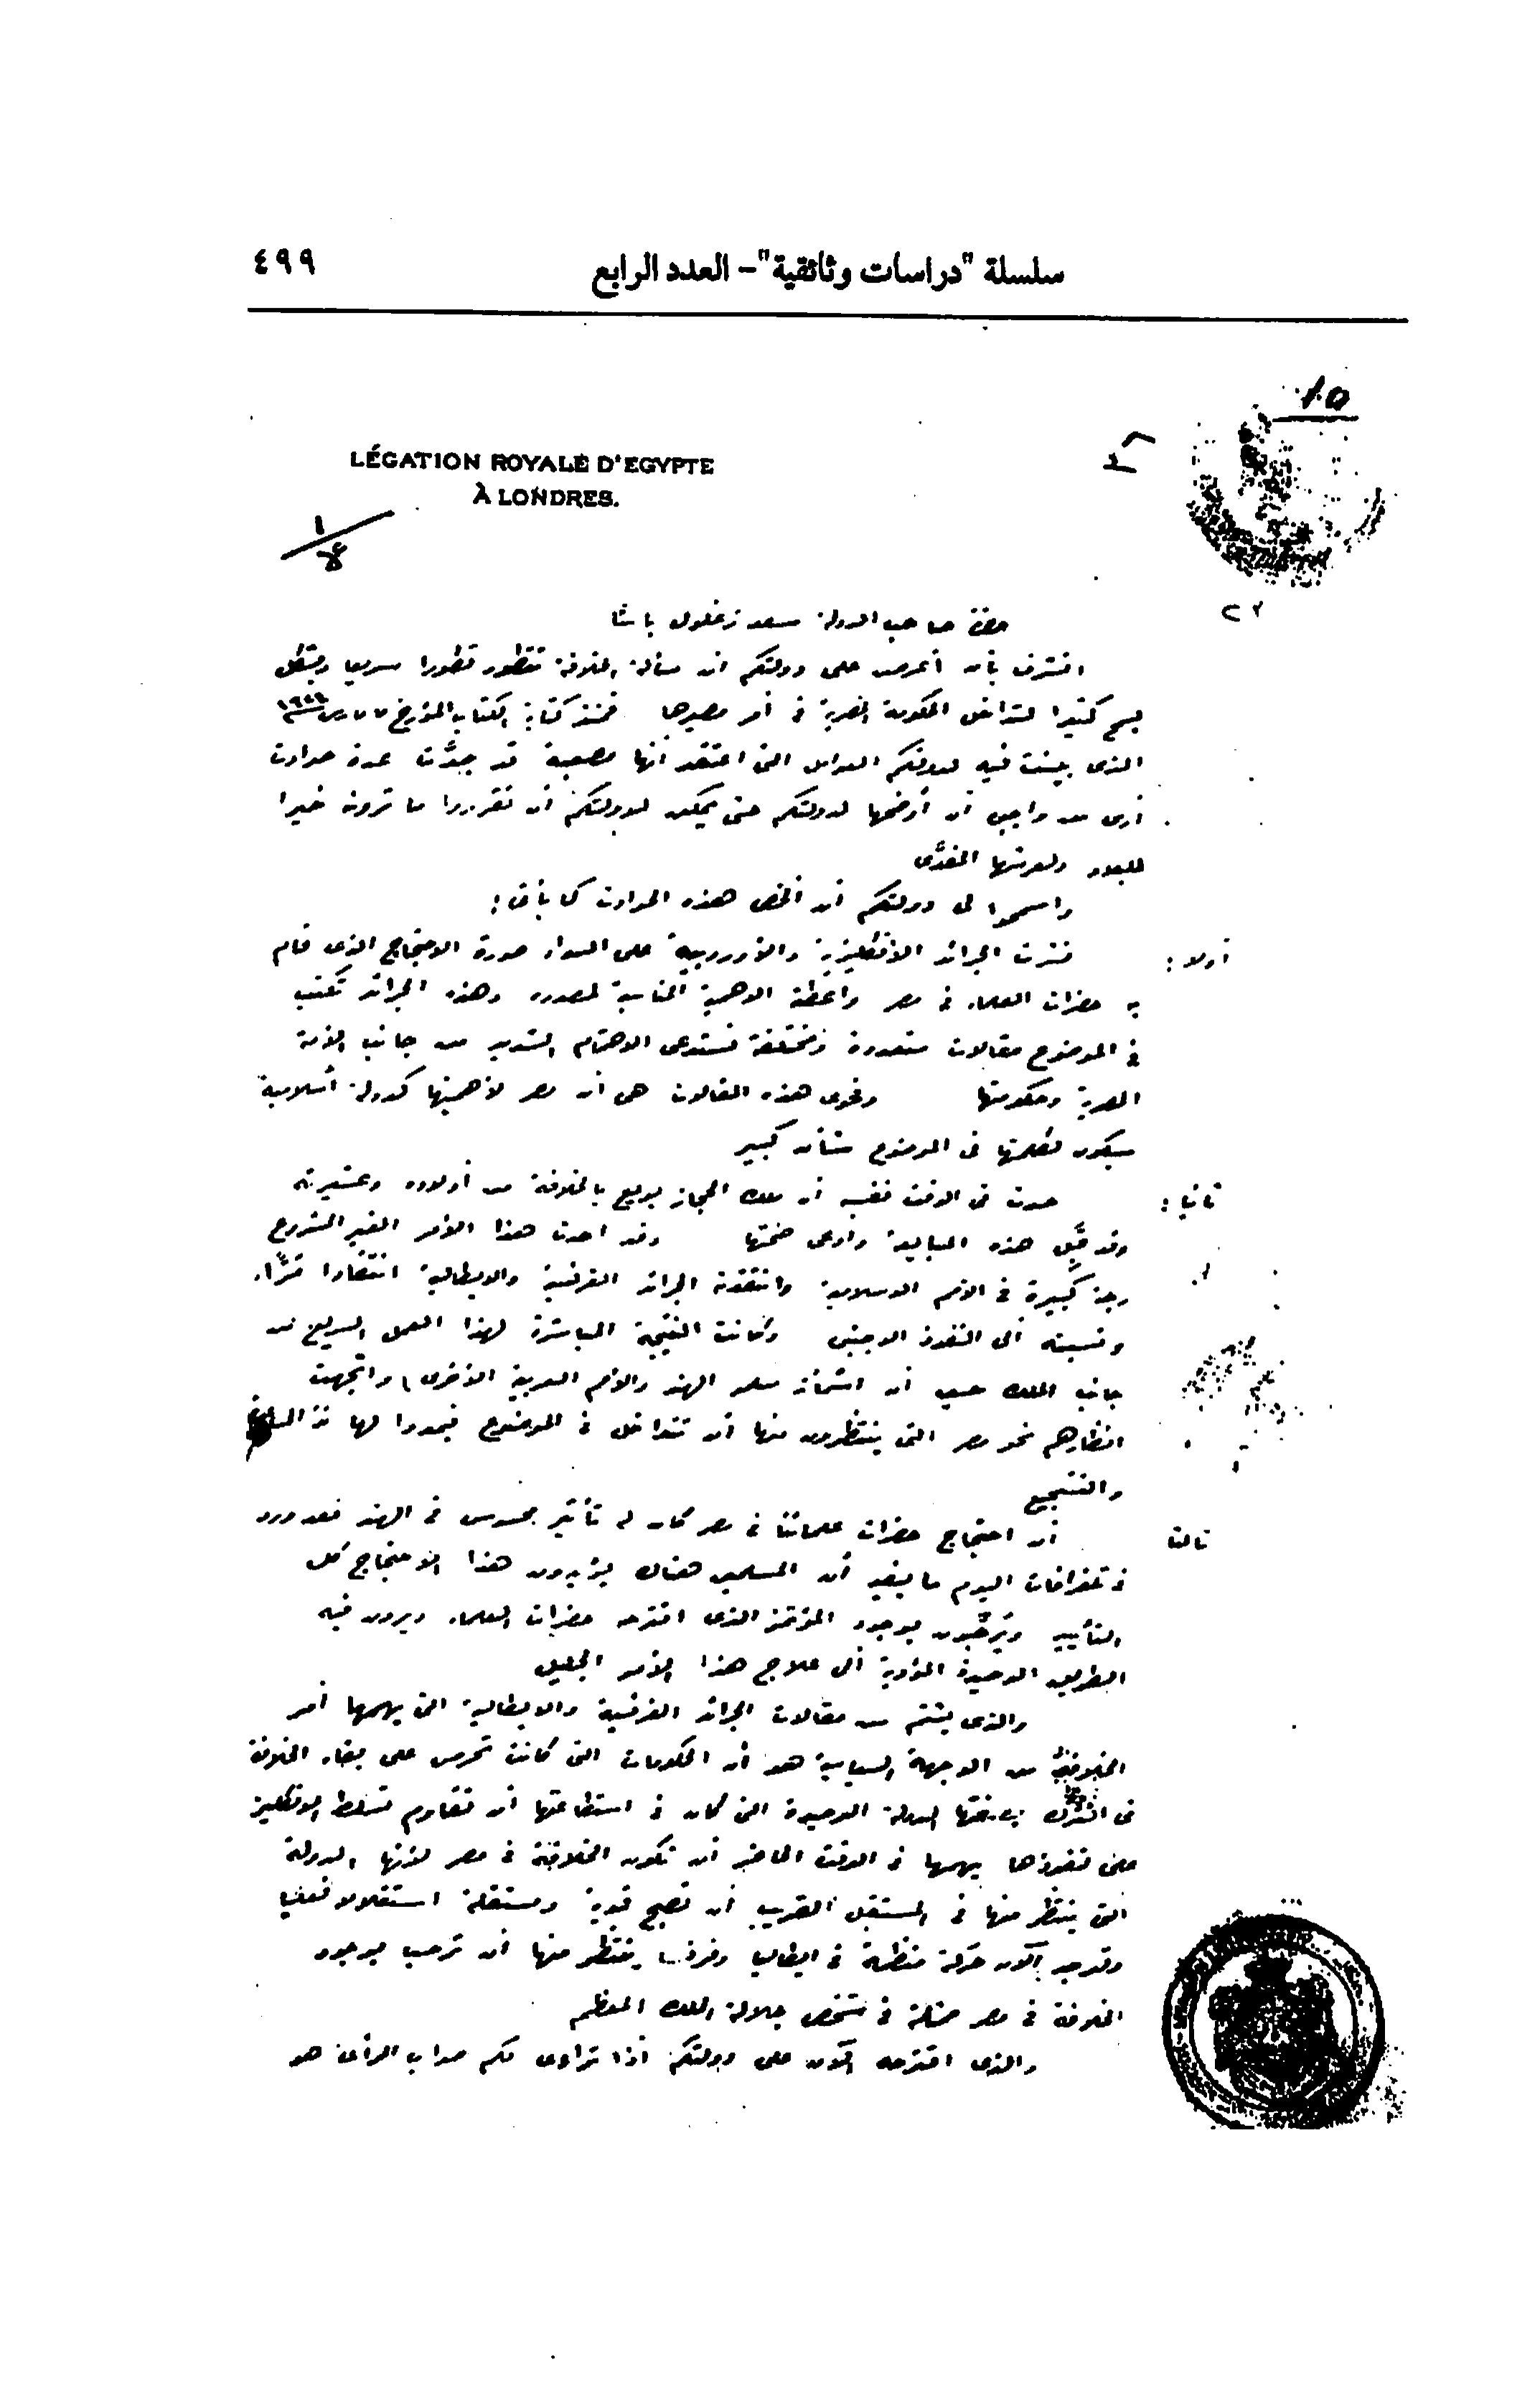 سلسلة "دراسات وثائقية"- العدد الرابع
٤٩٩
١٥
LÉGATION ROYALE D'EGYPTE
À LONDRES.
حضرة صاحب الدولة سعد زغلول باشا
اتشرف بأن أعرض على دولتكم ان مسألة الخلافة تتطور تطورا سريعا
كثيرا لتداخل الحكومة المصرية فى أمر مصيرها فمنذ كتابة الكتاب المؤرخ ٧ مارس
الذى بينت فيه لدولتكم العوامل التى اعتقد أنها قد جدَّت عدة حوادث
أرى من واجبى أن أوضحها لدولتكم حتى يمكن لدولتكم أن تقرروا ما ترونه خيرا
للبلاد ولعرشها المفدَّى
واسمحوا لى دولتكم أن ألخص هذه الحوادث كما يأتى :
أولا : نشرت الجرائد الأنكليزية والأوروبية على السواء صورة الاحتجاج الذى قام
به حضرات العلماء فى مصر وأعطته الاهمية المناسبة لمصدره وهذه الجرائد تكتب
فى الموضوع مقالات متعددة ومختلفة تستدعى الاهتمام الشديد من جانب الأمة
المصرية وحكومتها وفحوى هذه المقالات هى أن مصر لأهميتها كدولة أسلامية
سيكون لكلمتها فى الموضوع شأن كبير
ثانيا : حدث فى الوقت نفسه أن ملك الحجاز بويع بالخلافة من أولاده وعشيرته
وقد قَبِل هذه المبايعة وادعى صحتها وقد احدث هذا الأمر الغير المشروع
رجة كبيرة فى الأمم الاسلامية وانتقدته الجرائد الفرنسية والايطالية انتقادا مُرًّا
ونسبته ألى النفوذ الاجنبى وكانت النتيجة المباشرة لهذا العمل السريع من
جانب الملك حسين أن اشمأز مسلمو الهند والأمم العربية الأخرى واتجهت
انظارهم نحو مصر التى ينتظرون منها أن تتداخل فى الموضوع فيمدوا لها
والتشجيع
ثالثا أن احتجاج حضرات علمائنا فى مصر كان له تأثير محسوس فى الهند فقد ورد
فى تلغرافات اليوم ما يفيد أن المسلمين هناك يؤيدون هذا الاحتجاج كل
التأييد ويُرَحِّبون بوجود المؤتمر الذى اقترحه حضرات العلماء ويرون فيه
الطريق الوحيدة المؤدية ألى علاج هذا الأمر الجليل
والذى يشتم من مقالات الجرائد الفرنسية والايطالية التى يهمها أمر
الخلافة من الوجهة السياسية هو أن الحكومات التى كانت تحرص على بقاء الخلافة
فى الترك بصفتها الدولة الوحيدة التى كان فى استطاعتها أن تقاوم تسلط الانكليز
على نفوذها يهمها فى الوقت الحاضر أن تكون الخلافة فى مصر لأنها الدولة
التى ينتظر منها فى المستقبل القريب أن تصبح قوية ومستقلة استقلالا فعليا
وتوجد الآن حركة منظمة فى ايطاليا وفرنسا ينتظر منها أن ترحب بوجود
الخلافة فى مصر ممثلة فى شخص جلالة الملك المعظم
والذى اقترحه الآن على دولتكم أذا تراءى لكم صواب الرأى هو